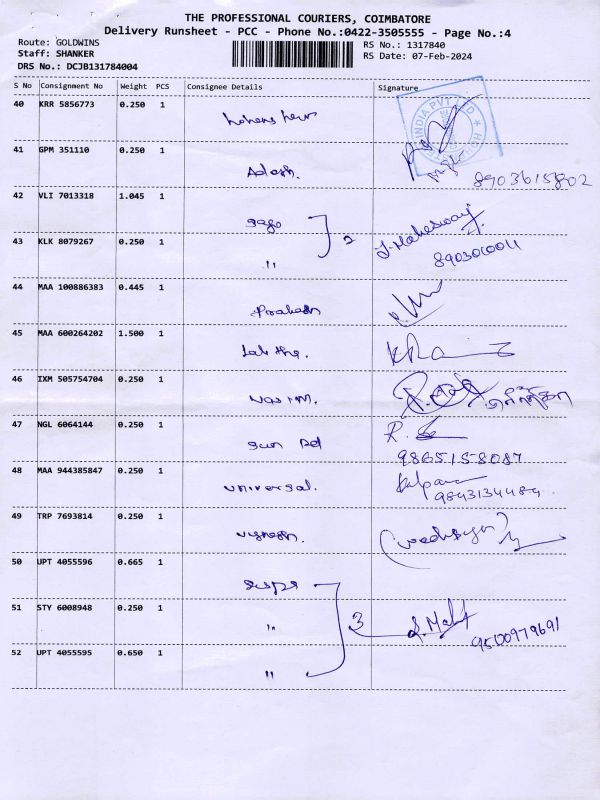 THE PROFESSIONAL COURIERS, COIMBATORE
Delivery Runsheet - PCC - Phone No.:0422-3505555 - Page No.:4
Route: GOLDWINS
Staff: SHANKER
DRS No.: DCJB131784004
RS No.: 1317840
RS Date: 07-Feb-2024
S No Consignment No Weight PCS Consignee Details Signature
40 KRR 5856773 0.250 1
INDIA PVT LTD
41 GPM 351110 0.250 1
Adash.
8903615802
42 VLI 7013318 1.045 1
sago
2
J. Maheswari
43 KLK 8079267 0.250 1
"
44 MAA 100886383 0.445 1
Prakash
45 MAA 600264202 1.500 1
46 IXM 505754704 0.250 1
47 NGL 6064144 0.250 1
sun Pd
9865158087
48 MAA 944385847 0.250 1
universal.
Kalpana
9843134484
49 TRP 7693814 0.250 1
vignesh.
50 UPT 4055596 0.665 1
51 STY 6008948 0.250 1
"
3
9500979691
52 UPT 4055595 0.650 1
"